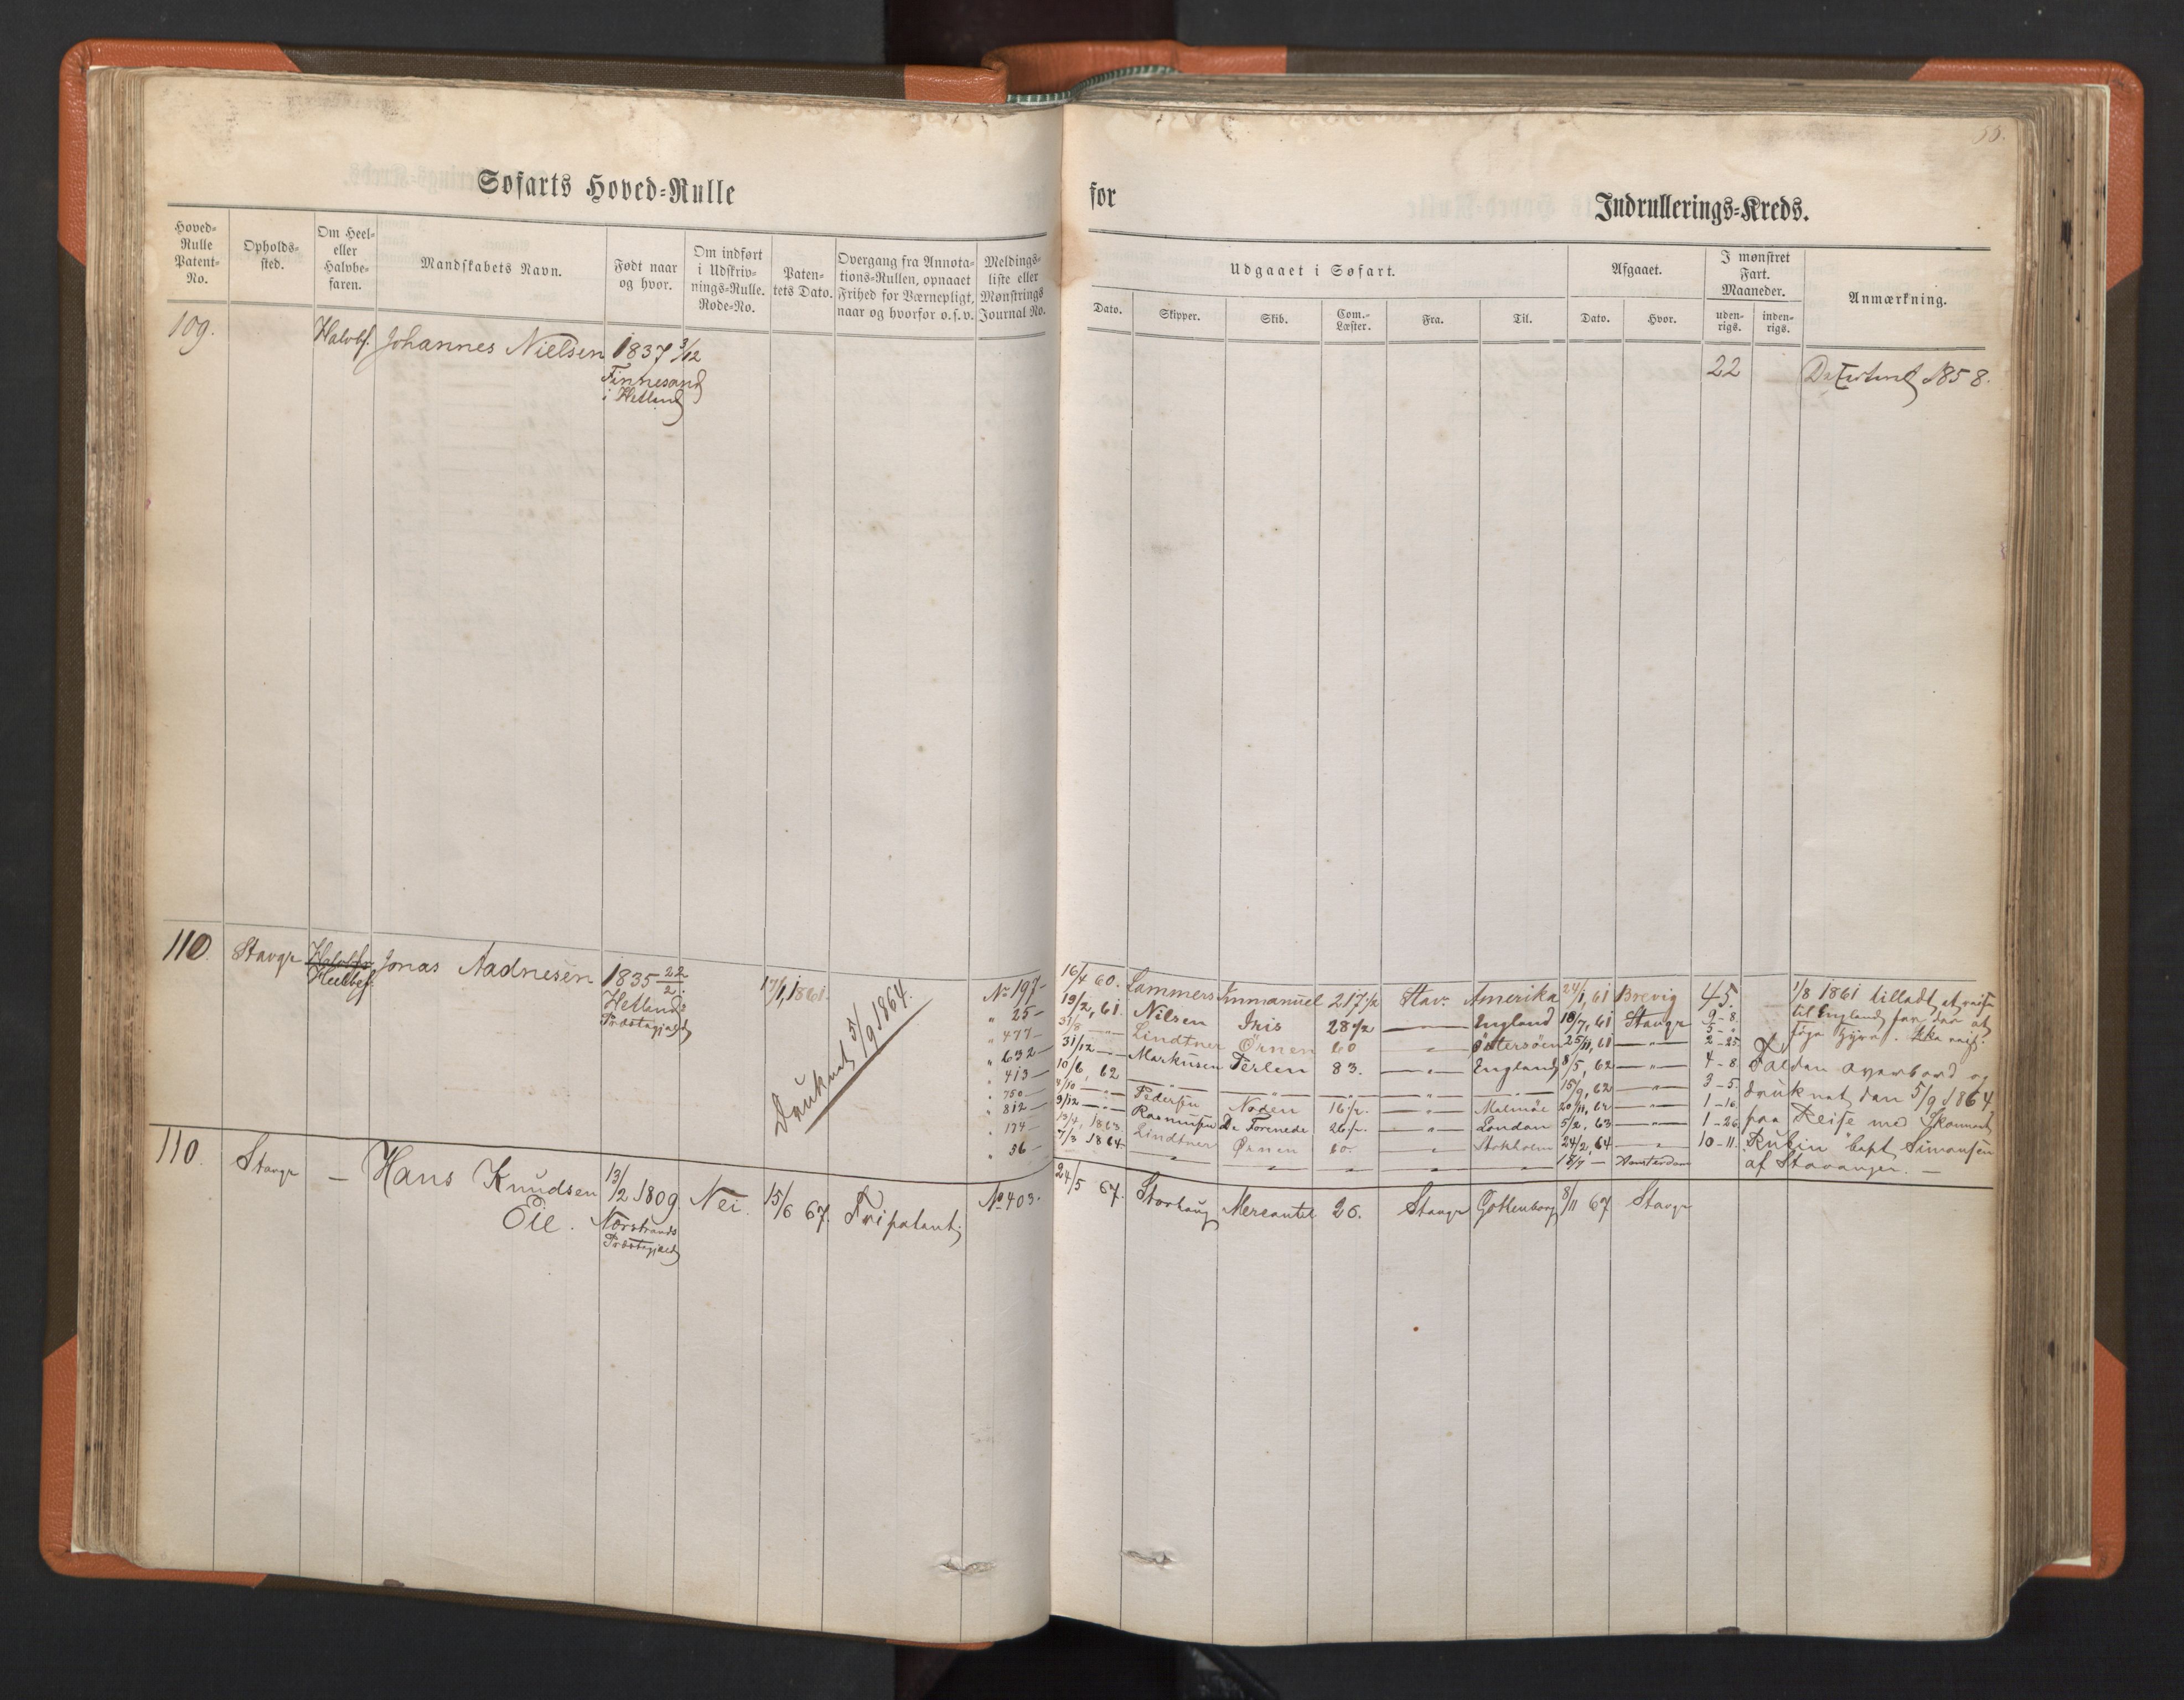 55.
Søfarts Hoved-Rulle
for
Indrullerings-Kreds.
Hoved-Rulle Patent-No.
Opholds-sted.
Om Heel- eller Halvbe-faren.
Mandskabets Navn.
Født naar og hvor.
Om indført i Udskriv-nings-Rulle. Rode-No.
Paten-tets Dato.
Overgang fra Annota-tions-Rullen, opnaaet Frihed for Værnepligt, naar og hvorfor o.s.v.
Meldings-liste eller Mønstrings Journal No.
Udgaaet i Søfart.
Afgaaet.
I mønstret Fart. Maaneder.
Anmærkning.
Dato.
Skipper.
Skib.
Com.-Læster.
Fra.
Til.
Dato.
Hvor.
uden-rigs.
inden-rigs.
109. Halvbf. Johannes Nielsen 1837 3/12 22 1858.
Finnesand
i Hetland
110. Stavgr Halvbf. Jonas Aadnesen 1835 22/2. 17/1, 1861. No 197 16/4 60. Lammers Immanuel 217 1/2 Stavr Amerika 24/1, 61 Brevig 45. 1/8 1861 tilladt at reise
Heelbef. Hetlands
Præstegjeld
Druknet 5/9 1864.
" 25 19/2, 61. Nilsen Iris 28 1/2 England 18/7, 61 Stavgr 9-8. til England for der at
" 477 31/8 Lindtner Örnen 60 " Öttersöen 25/11, 61 " 5-"
" 632 31/12 Markusen Perlen 83. " England 8/5, 62 " 2-25.
" 413 10/6, 62 " " " " 15/9, 62 " 4-8. Falden overbord og
" 750 4/10 Pedersen Noren 16 1/2. " Malmöe 20/11, 62 " 3-5. druknet den 5/9 1864
" 812 9/12 Rasmusen De Forenede 26 1/2. " London 5/2, 63 " 1-16. paa Reise med Skonnert
" 174 13/4, 1863. Lindtner Örnen 60. " Stokholm 24/2, 64 " 1-26. "Rubin" Capt. Simonsen
" 56 7/3 1864 " " " " " 18/9 Amsterdam 10-11. af Stavanger.
110. Stavgr - Hans Knudsen 13/2 1809. Nei. 15/6 67. Fripatent; No 403. 24/5 67. Storhaug Mercantil 26. Stavgr Gottenborg 8/11 67 Stavgr
Eie. Nærstrands
Præstegjeld